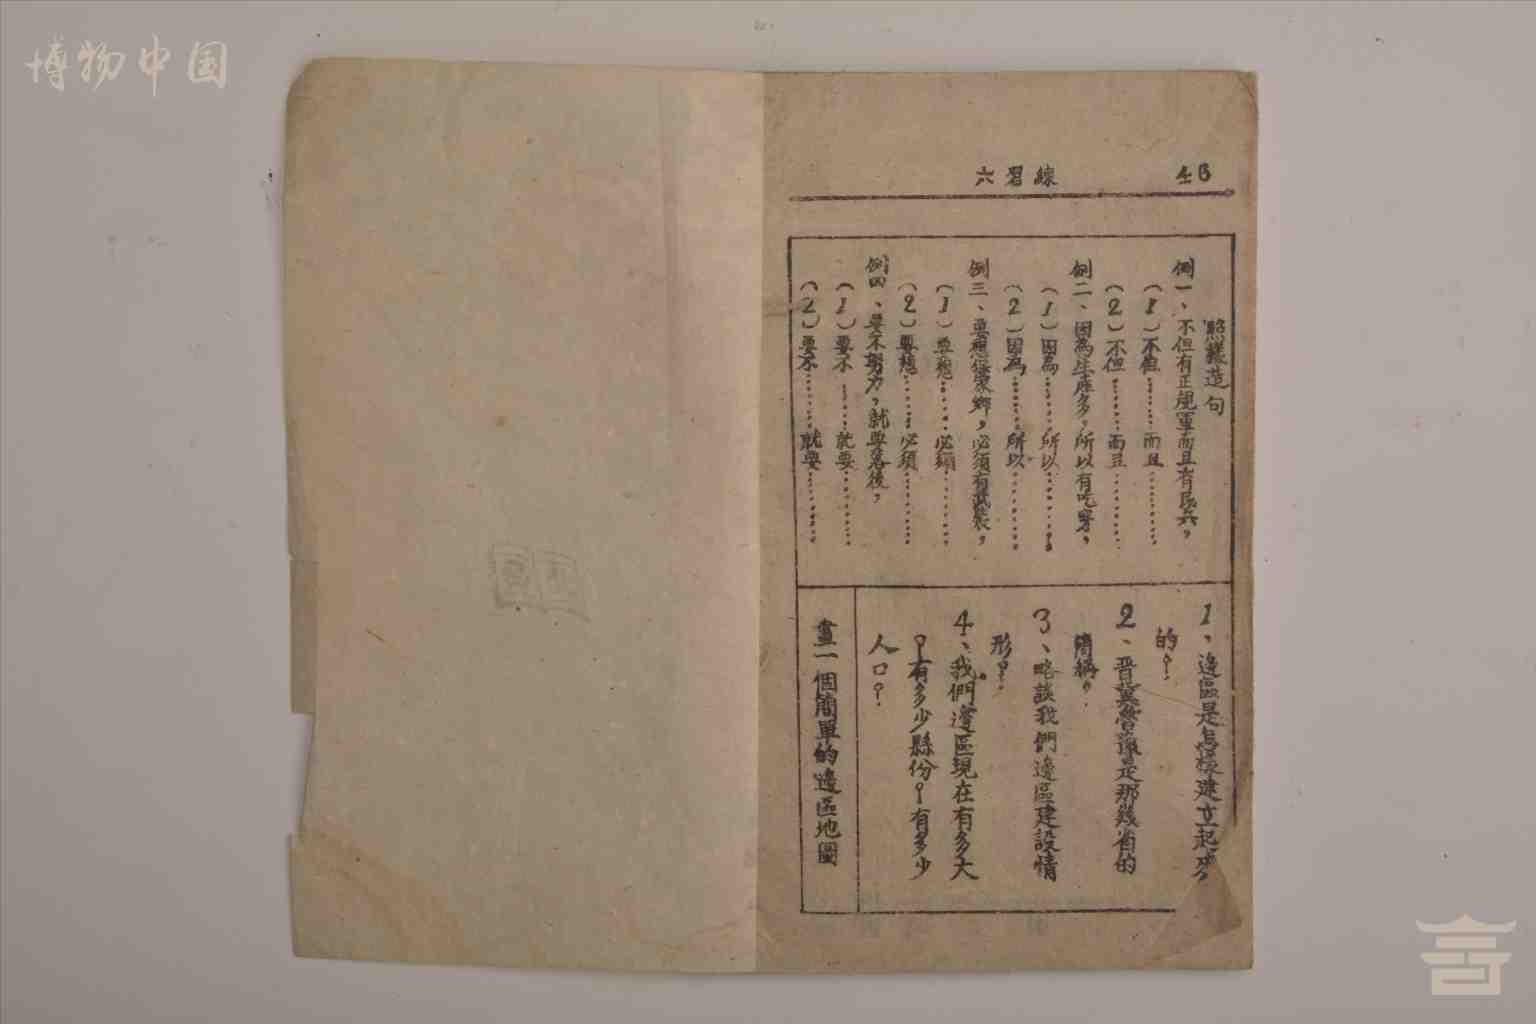 博物中国
46
練習六
照樣造句
例一、不但有正規軍而且有民兵，
(1)不但……而且………
(2)不但……而且………
例二、因為生産多，所以有吃穿，
(1)因為……所以………
(2)因為……所以………
例三、要想保家鄉，必須有武裝，
(1)要想……必須………
(2)要想……必須………
例四、要不努力，就要落後，
(1)要不……就要………
(2)要不……就要………
1、邊區是怎樣建立起來
的？
2、晋冀魯豫是那幾省的
簡稱？
3、略談我們邊區建設情
形？
4、我們邊區現在有多大
？有多少縣份？有多少
人口？
畫一個簡單的邊區地圖